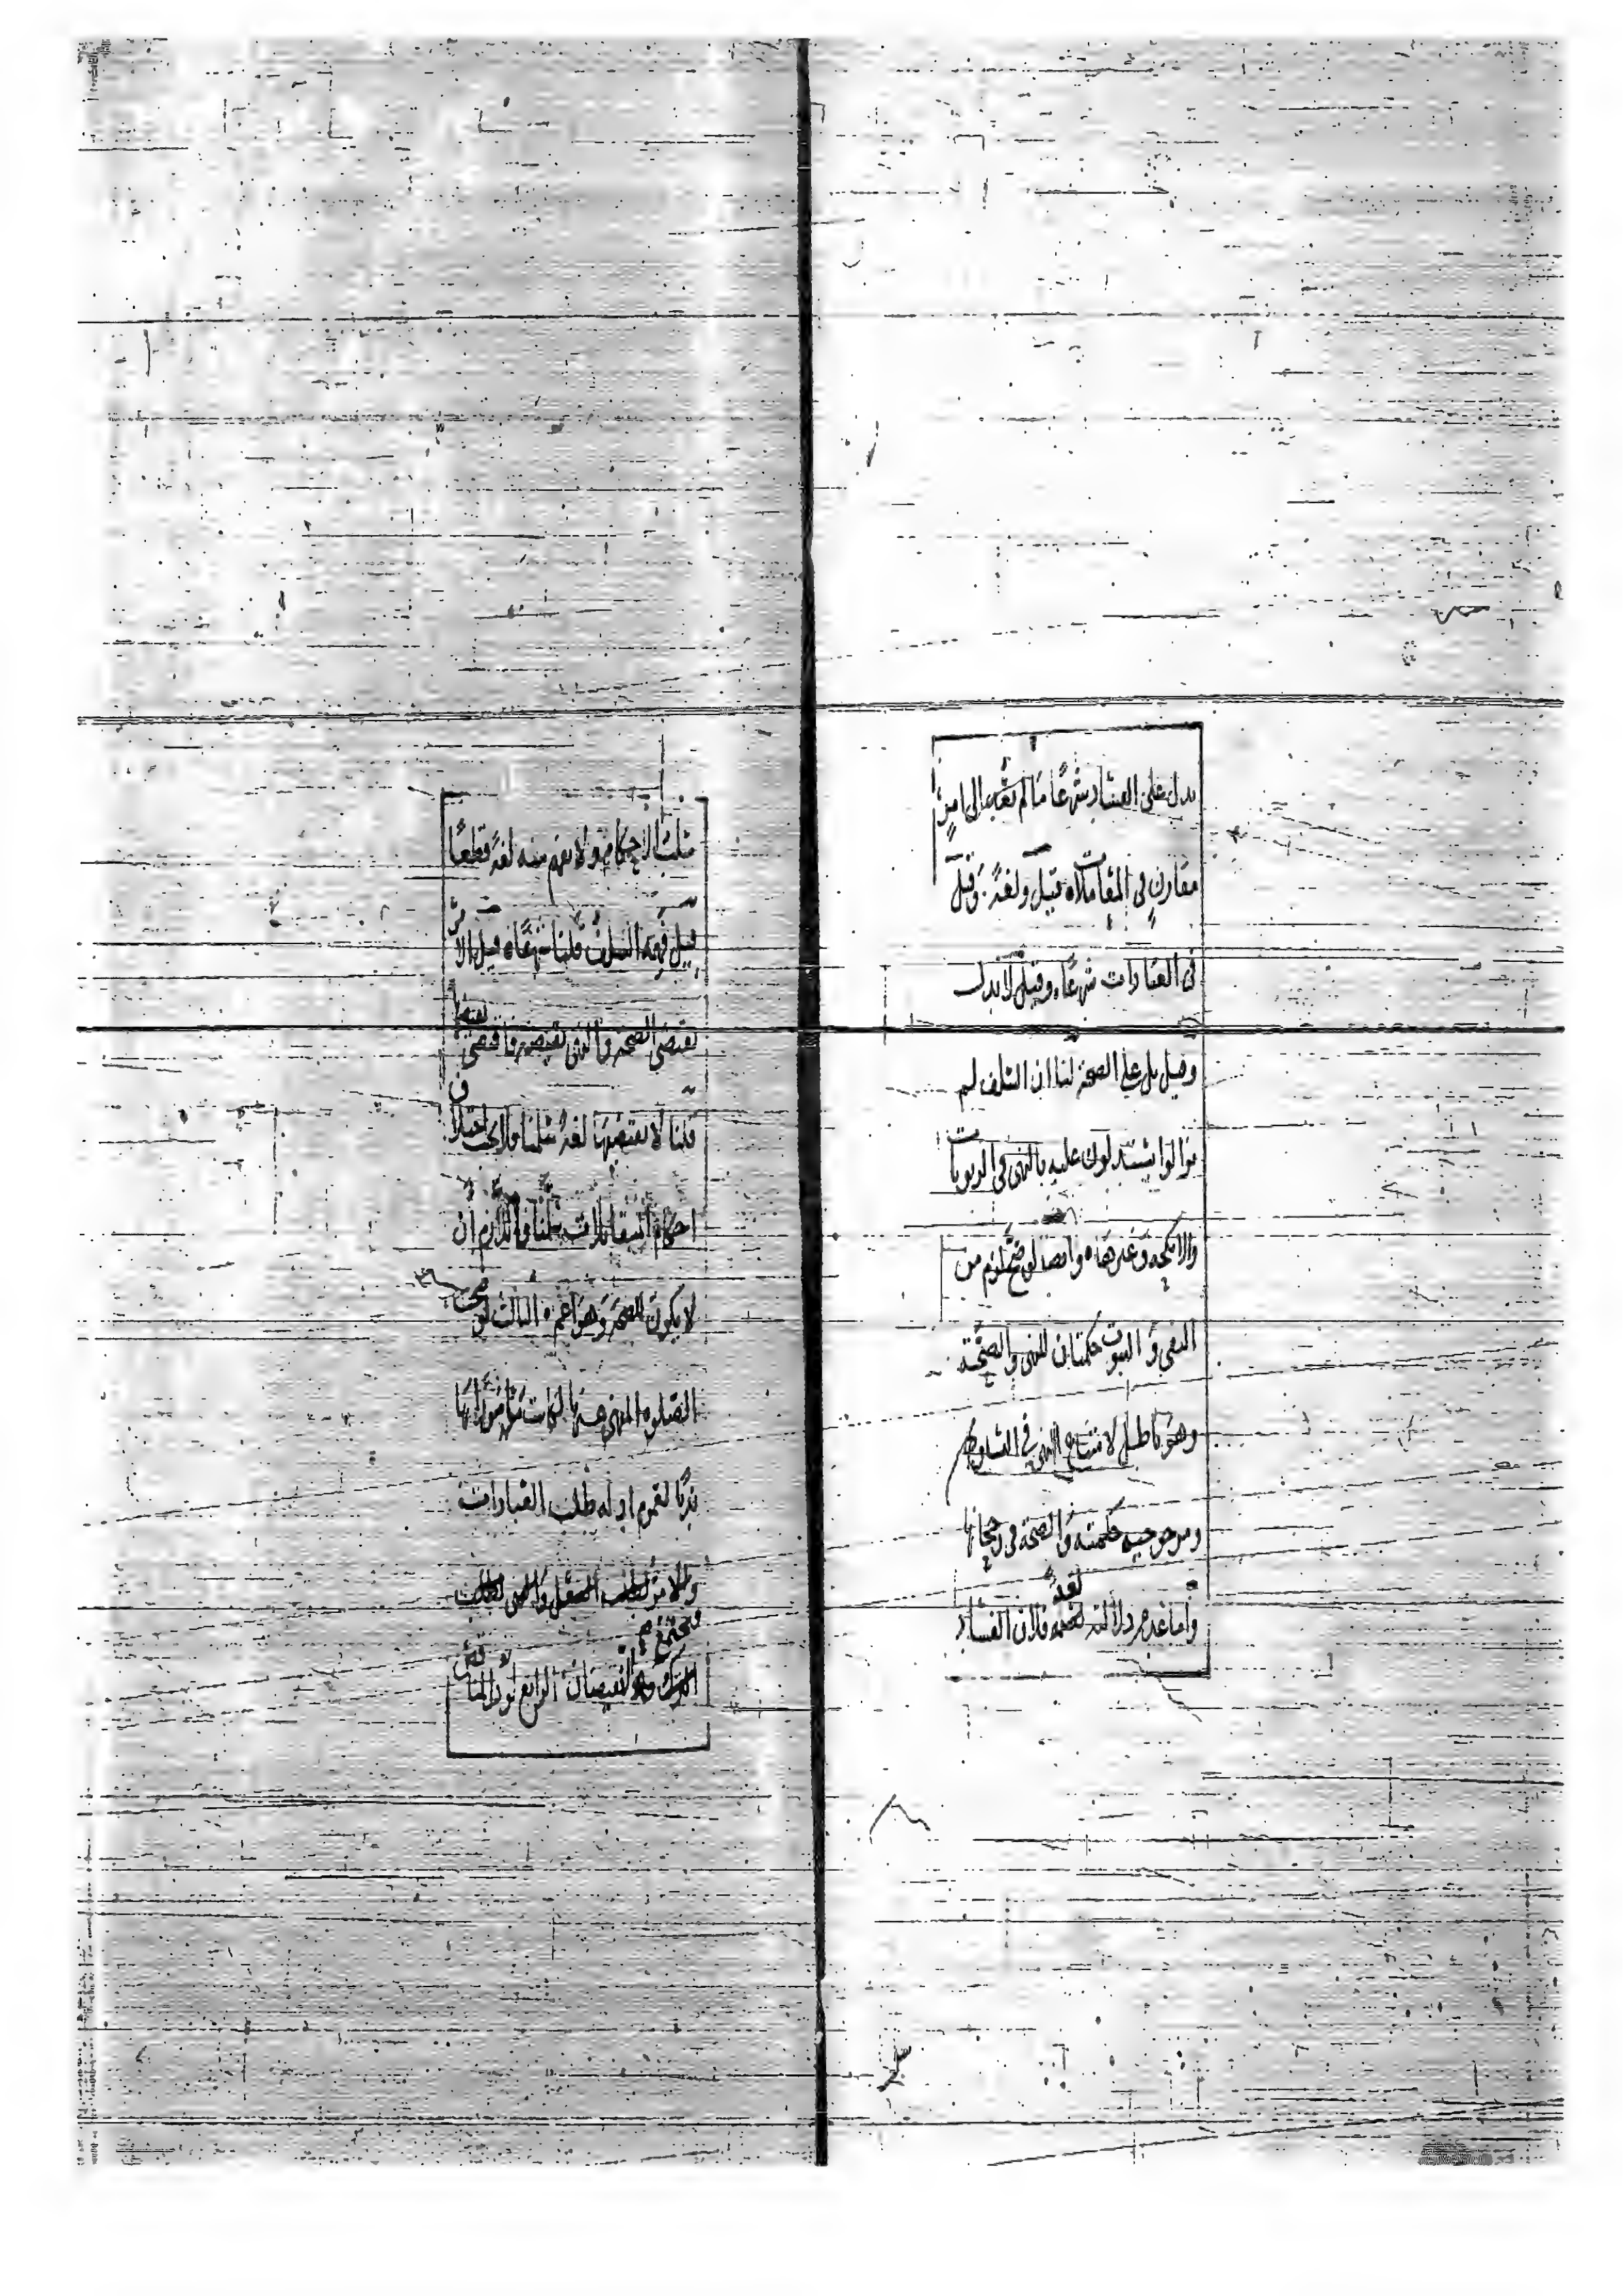 يدل على الفساد شرعًا ما لم يعد الى امر
مقارن في المعاملات وقيل ولغةً وقيل
في العبادات شرعًا وقيل لا يدل
وقيل يدل على الصحة لنا ان السلف لم
يزالوا يستدلون عليه بالنهى في الربويات
والانكحة وغيرها وايضا لو صح لزم من
النفي والثبوت حكمتان للنهى والصحة
وهو باطل لامتناع النهى في التساوى
ومرجوحية حكمته والصحة في رجحانها
واما عدم دلالته لغةً فلان الفساد
سلب الاحكام ولا يفهم منه لغةً قطعًا
قيل فهمه السلف قلنا شرعًا قيل الامر
يقتضى الصحة والنهى نقيضه فاقتضى نقيضها
قلنا لا يقتضيها لغةً سلمنا فلا يجب اختلاف
احكام المتقابلات سلمنا فاللازم ان
لا يكون للصحة وهو اعم الثالث لو صحت
الصلوة المنهى عنها لكانت مأمورًا بها
ندبًا لعموم ادلة طلب العبادات
والامر لطلب الفعل والنهى لطلب
الترك فيجتمع النقيضان الرابع لو